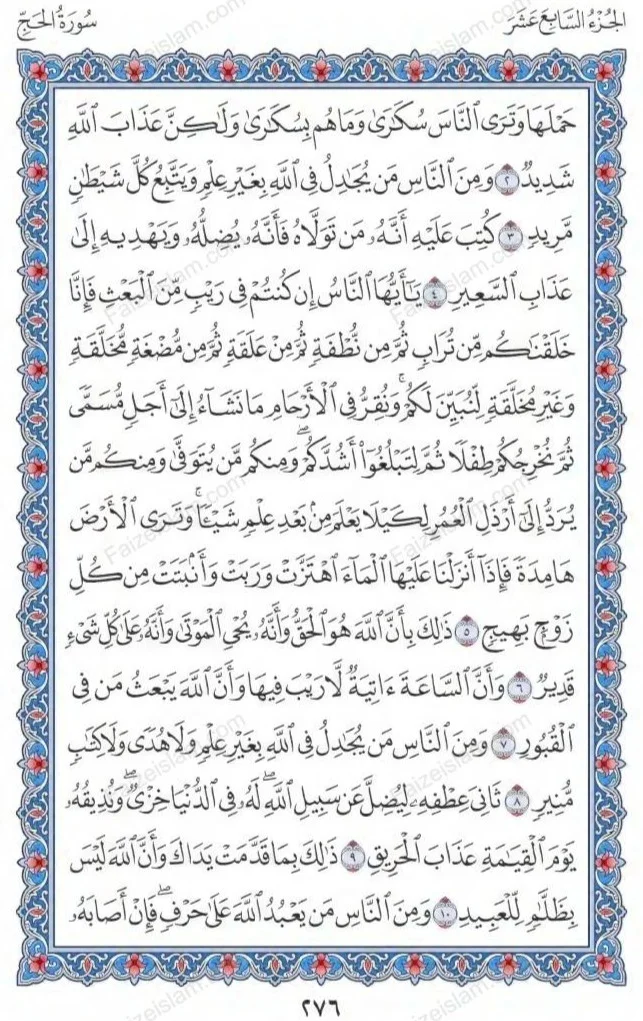 الجُزْءُ السَّابِعَ عَشَرَ
سُورَةُ الحَجِّ
حَمْلَهَا وَتَرَى ٱلنَّاسَ سُكَٰرَىٰ وَمَا هُم بِسُكَٰرَىٰ وَلَٰكِنَّ عَذَابَ ٱللَّهِ
شَدِيدٌ ٢ وَمِنَ ٱلنَّاسِ مَن يُجَٰدِلُ فِى ٱللَّهِ بِغَيْرِ عِلْمٍ وَيَتَّبِعُ كُلَّ شَيْطَٰنٍ
مَّرِيدٍ ٣ كُتِبَ عَلَيْهِ أَنَّهُۥ مَن تَوَلَّاهُ فَأَنَّهُۥ يُضِلُّهُۥ وَيَهْدِيهِ إِلَىٰ
عَذَابِ ٱلسَّعِيرِ ٤ يَٰٓأَيُّهَا ٱلنَّاسُ إِن كُنتُمْ فِى رَيْبٍ مِّنَ ٱلْبَعْثِ فَإِنَّا
خَلَقْنَٰكُم مِّن تُرَابٍ ثُمَّ مِن نُّطْفَةٍ ثُمَّ مِنْ عَلَقَةٍ ثُمَّ مِن مُّضْغَةٍ مُّخَلَّقَةٍ
وَغَيْرِ مُخَلَّقَةٍ لِّنُبَيِّنَ لَكُمْ ۚ وَنُقِرُّ فِى ٱلْأَرْحَامِ مَا نَشَآءُ إِلَىٰٓ أَجَلٍ مُّسَمًّى
ثُمَّ نُخْرِجُكُمْ طِفْلًا ثُمَّ لِتَبْلُغُوٓا۟ أَشُدَّكُمْ ۖ وَمِنكُم مَّن يُتَوَفَّىٰ وَمِنكُم مَّن
يُرَدُّ إِلَىٰٓ أَرْذَلِ ٱلْعُمُرِ لِكَيْلَا يَعْلَمَ مِنۢ بَعْدِ عِلْمٍ شَيْـًٔا ۚ وَتَرَى ٱلْأَرْضَ
هَامِدَةً فَإِذَآ أَنزَلْنَا عَلَيْهَا ٱلْمَآءَ ٱهْتَزَّتْ وَرَبَتْ وَأَنۢبَتَتْ مِن كُلِّ
زَوْجٍۭ بَهِيجٍ ٥ ذَٰلِكَ بِأَنَّ ٱللَّهَ هُوَ ٱلْحَقُّ وَأَنَّهُۥ يُحْىِ ٱلْمَوْتَىٰ وَأَنَّهُۥ عَلَىٰ كُلِّ شَىْءٍ
قَدِيرٌ ٦ وَأَنَّ ٱلسَّاعَةَ ءَاتِيَةٌ لَّا رَيْبَ فِيهَا وَأَنَّ ٱللَّهَ يَبْعَثُ مَن فِى
ٱلْقُبُورِ ٧ وَمِنَ ٱلنَّاسِ مَن يُجَٰدِلُ فِى ٱللَّهِ بِغَيْرِ عِلْمٍ وَلَا هُدًى وَلَا كِتَٰبٍ
مُّنِيرٍ ٨ ثَانِىَ عِطْفِهِۦ لِيُضِلَّ عَن سَبِيلِ ٱللَّهِ ۖ لَهُۥ فِى ٱلدُّنْيَا خِزْىٌ ۖ وَنُذِيقُهُۥ
يَوْمَ ٱلْقِيَٰمَةِ عَذَابَ ٱلْحَرِيقِ ٩ ذَٰلِكَ بِمَا قَدَّمَتْ يَدَاكَ وَأَنَّ ٱللَّهَ لَيْسَ
بِظَلَّٰمٍ لِّلْعَبِيدِ ١٠ وَمِنَ ٱلنَّاسِ مَن يَعْبُدُ ٱللَّهَ عَلَىٰ حَرْفٍ ۖ فَإِنْ أَصَابَهُۥ
٢٧٦
Faizeislam.com